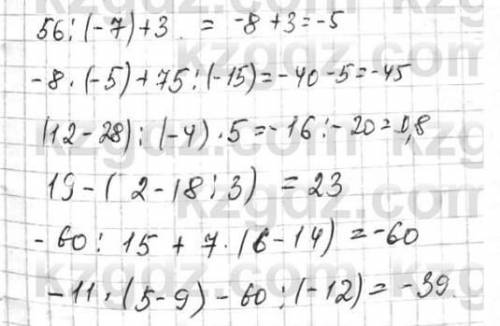 56:(-7)+3 = -8+3=-5
-8·(-5)+75:(-15)=-40-5=-45
(12-28):(-4)·5=-16:-20=0,8
19-(2-18:3)=23
-60:15+7·(6-14)=-60
-11·(5-9)-60:(-12)=-39